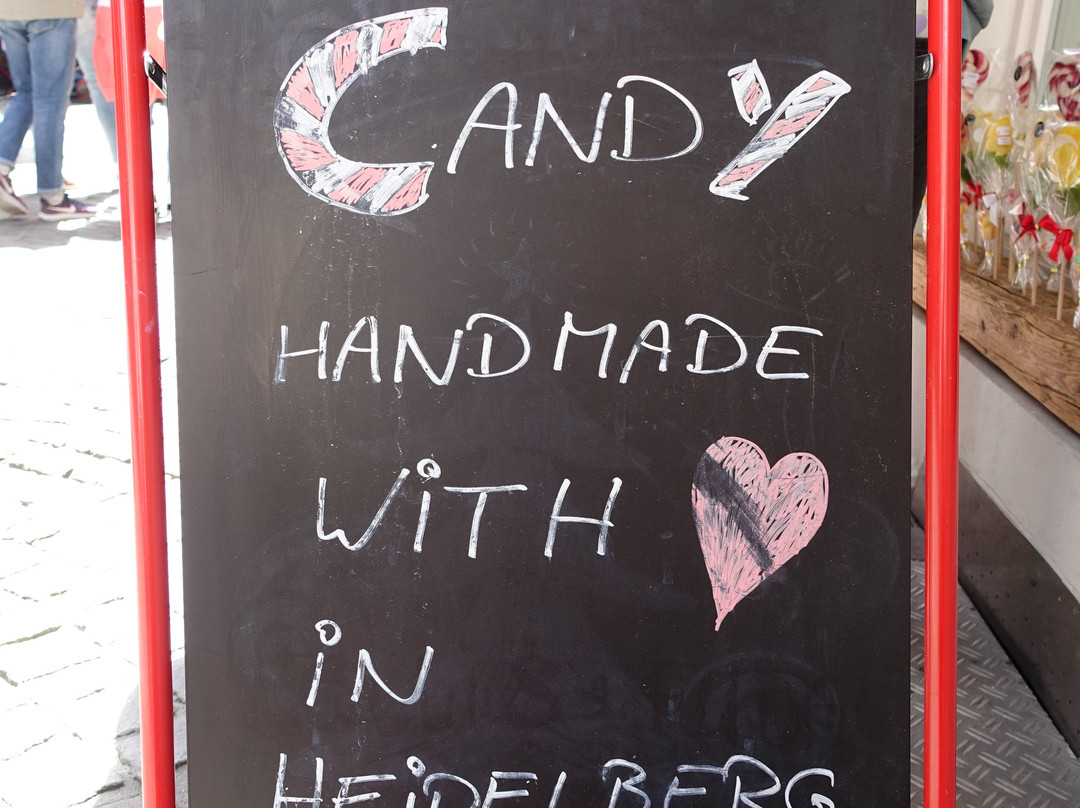 CANDY
HANDMADE
WiTH
iN
HEiDELBERG